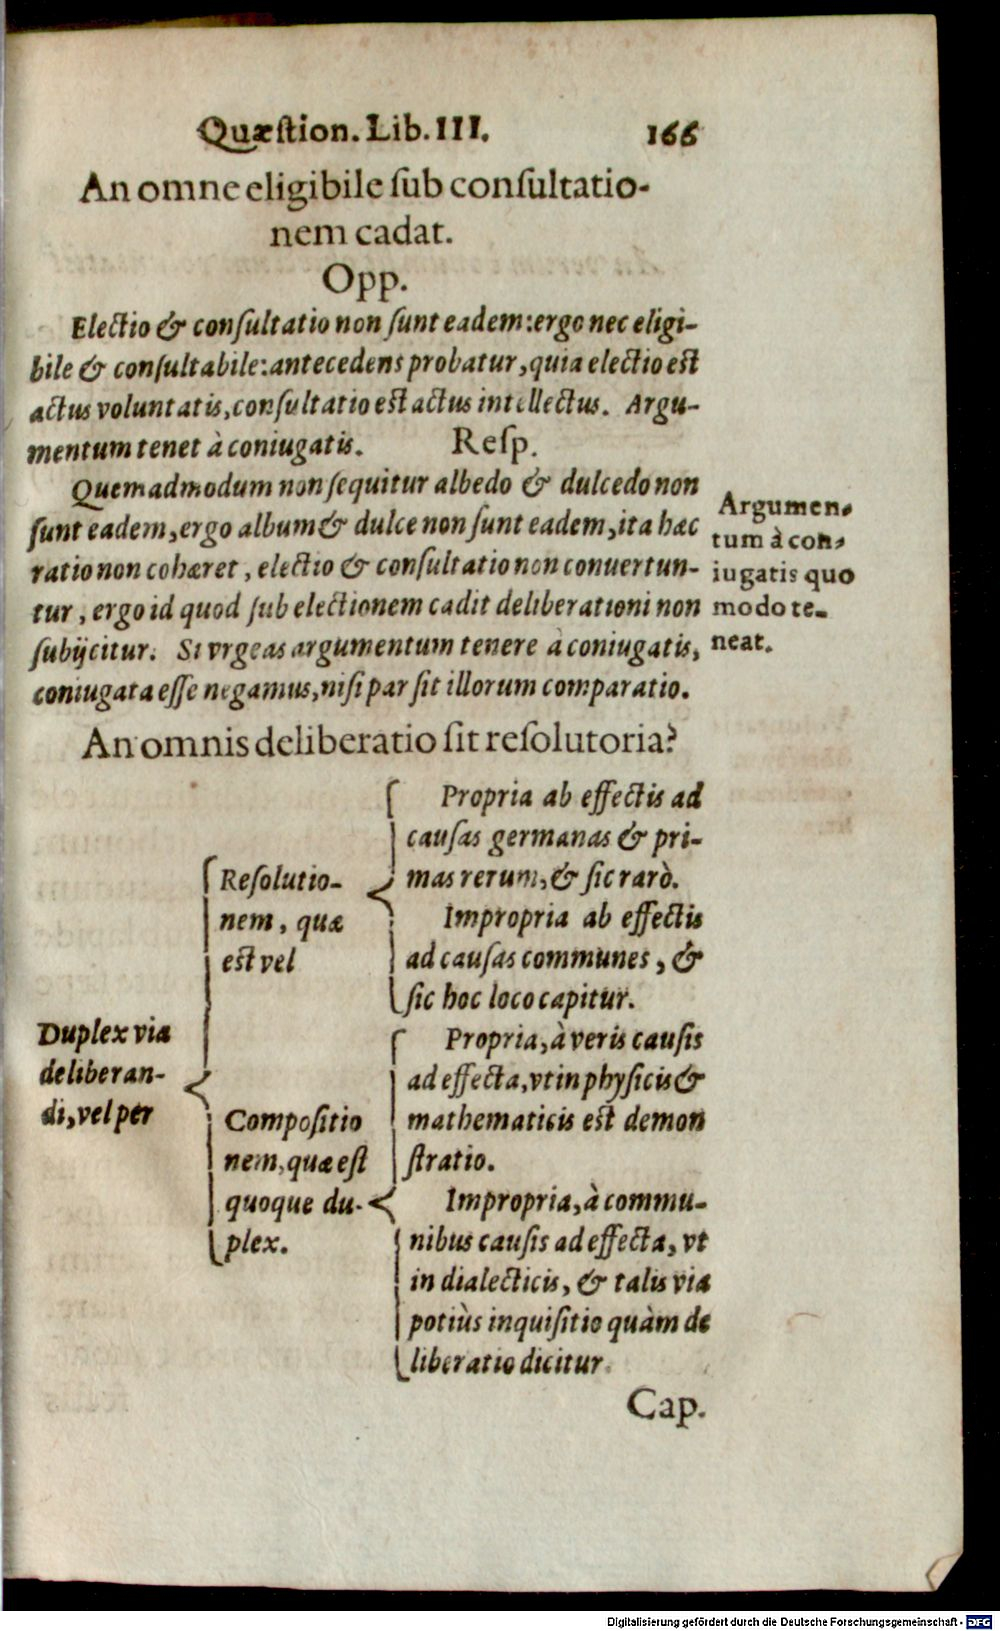 Quæstion. Lib. III. 166
An omne eligibile ſub conſultatio-
nem cadat.
Opp.
Electio & conſultatio non ſunt eadem: ergo nec eligi-
bile & conſultabile: antecedens probatur, quia electio est
actus voluntatis, conſultatio est actus intellectus. Argu-
mentum tenet à coniugatis. Reſp.
Quemadmodum non ſequitur albedo & dulcedo non
ſunt eadem, ergo album & dulce non ſunt eadem, ita hæc
ratio non cohæret, electio & conſultatio non conuertun-
tur, ergo id quod ſub electionem cadit deliberationi non
ſubijcitur. Si vrgeas argumentum tenere à coniugatis,
coniugata eſſe negamus, niſi par ſit illorum comparatio.
Argumen-
tum à con-
iugatis quo
modo te-
neat.
An omnis deliberatio ſit reſolutoria?
Duplex via
deliberan-
di, vel per
Reſolutio-
nem, quæ
est vel
Propria ab effectis ad
cauſas germanas & pri-
mas rerum, & ſic rarò.
Impropria ab effectis
ad cauſas communes, &
ſic hoc loco capitur.
Compoſitio
nem, quæ eſt
quoque du-
plex.
Propria, à veris cauſis
ad effecta, vt in phyſicis &
mathematicis est demon
ſtratio.
Impropria, à commu-
nibus cauſis ad effecta, vt
in dialecticis, & talis via
potiùs inquiſitio quàm de
liberatio dicitur.
Cap.
Digitalisierung gefördert durch die Deutsche Forschungsgemeinschaft - DFG